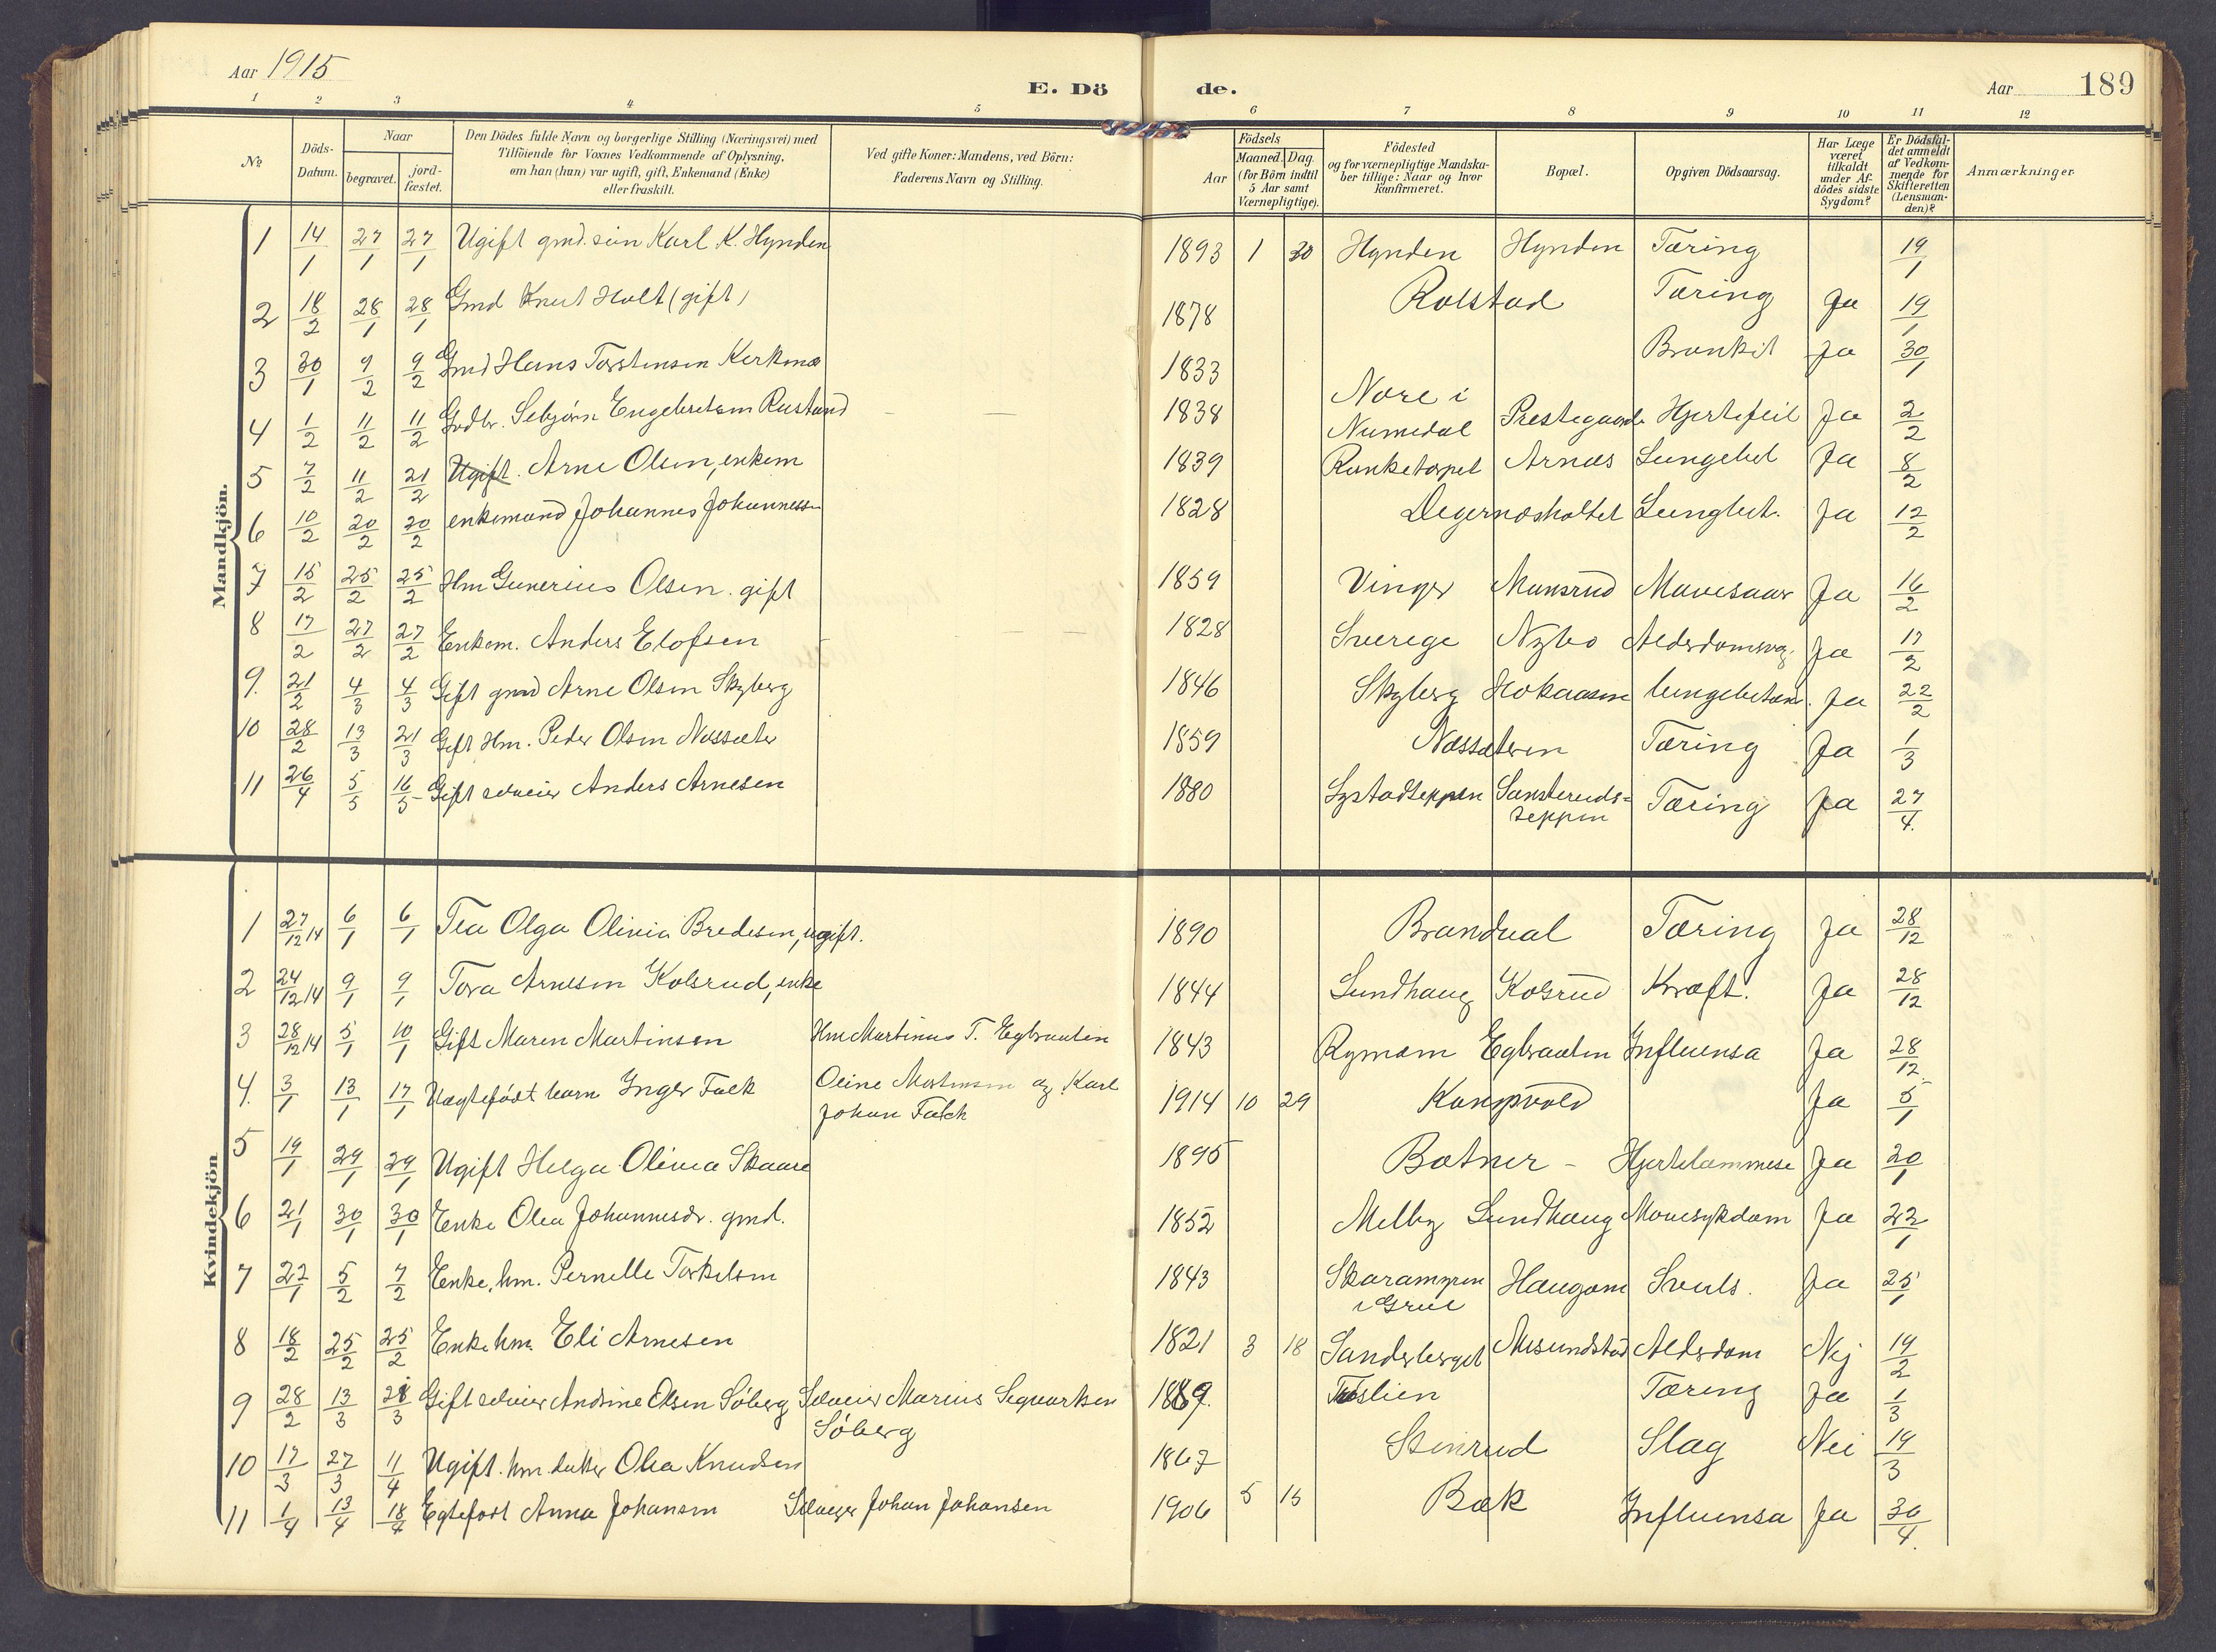 Aar 1915 E. Dö de. Aar 189
1 2 3 4 5 6 7 8 9 10 11 12
№
Döds-
Datum.
Naar
begravet.
jord-
fæstet.
Den Dödes fulde Navn og borgerlige Stilling (Næringsvei) med
Tilföiende for Voxnes Vedkommende af Oplysning,
om han (hun) var ugift, gift, Enkemand (Enke)
eller fraskilt.
Ved gifte Koner: Mandens, ved Börn:
Faderens Navn og Stilling.
Aar
Födsels
Maaned. Dag.
(for Börn indtil
5 Aar samt
Værnepligtige).
Födested
og for værnepligtige Mandska-
ber tillige: Naar og hvor
konfirmeret.
Bopæl.
Opgiven Dödsaarsag.
Har Læge
været
tilkaldt
under Af-
dödes sidste
Sygdom?
Er Dödsfal-
det anmeldt
af Vedkom-
mende for
Skifteretten
(Lensman-
den)?
Anmærkninger
Mandkjön.
1 14/1 27/1 27/1 Ugift gmd. sön Karl K. Hynden 1893 1 30 Hynden Hynden Tæring 19/1
2 18/2 28/1 28/1 Gmd Knut Holt (gift) 1878 Rolstad Tæring Ja 19/1
3 30/1 9/2 9/2 Gmd Hans Torstensen Kerkmo 1833 Bronkit Ja 30/1
4 1/2 11/2 11/2 Gdbr. Sebjörn Engebretsen Rustand 1838 Nore i Numedal Prestegaarde Hjertefeil Ja 2/2
5 7/2 11/2 21/2 Ugift. Arne Olsen, enkem 1839 Runketorpet Arnæs Lungebet Ja 8/2
6 10/2 20/2 20/2 enkemand Johannes Johannessen 1828 Degernæsholtet Lungbet. Ja 12/2
7 15/2 25/2 25/2 Hm Gunerius Olsen. gift 1859 Vinger Munsrud Mavesaar Ja 16/2
8 17/2 27/2 27/2 Enkem. Anders Elofsen 1828 Sverige Nybo Alderdomsvag. Ja 17/2
9. 21/2 4/3 4/3 Gift gmd Arne Olsen Skyberg 1846 Skyberg Hokaasen lungebetænd. Ja 22/2
10 28/2 13/3 21/3 Gift Hm. Peder Olsen Næssæter 1859 Næssæteren Tæring Ja 1/3
11 26/4 5/5 16/5 Gift selveier Anders Arnesen 1880 Systadseppen Sansteruds=seppen Tæring Ja 27/4.
Kvindekjön
1 27/12 14 6/1 6/1 Tea Olga Olivia Bredesen, ugift. 1890 Brandval Tæring Ja 28/12
2 24/12 14 9/1 9/1 Tora Arnesen Kolsrud, enke 1844 Sundhaug Kolsrud Kræft. Ja 28/12
3 28/12 14 5/1 10/1 Gift Maren Martinsen Hm Martinus T. Egbraaten 1843 Rymoen Egbraaten Influensa Ja 28/12
4. 3/1 13/1 17/1 Uægtefödt barn Inger Falk Oline Mortensen og Karl
Johan Falch 1914 10 29 Kongsvold Ja 5/1
5 19/1 29/1 29/1 Ugift Helga Olivia Skaare 1895 Botner - Hjertelammese Ja 20/1
6 21/1 30/1 30/1 Enke Olea Johannesdr. gmd. 1852 Melby Sundhaug Mavesykdom Ja 22/1
7 22/1 5/2 7/2 Enke, hm. Pernelle Torkelsen 1843 Skaramyren
i Grue Haugom Svuls. Ja 25/1
8 18/2 25/2 25/2 Enke hm. Eli Arnesen 1821 3 18 Sanderberget Musundstad Alderdom Nej 19/2
9 28/2 13/3 28/3 Gift selveier Andrine Olsen Söberg Selveier Marius Seqvartsen
Söberg 1889. Tæslien Tæring Ja 1/3
10 17/3 27/3 11/4 Ugift. hm. datter Olea Knudsen 1867 Stenrud Slag Nei 19/3
11 1/4 13/4 18/4 Egtefödt Anna Johansen Selveger Johan Johansen 1906 5 15 Bæk Influensa Ja 30/4.